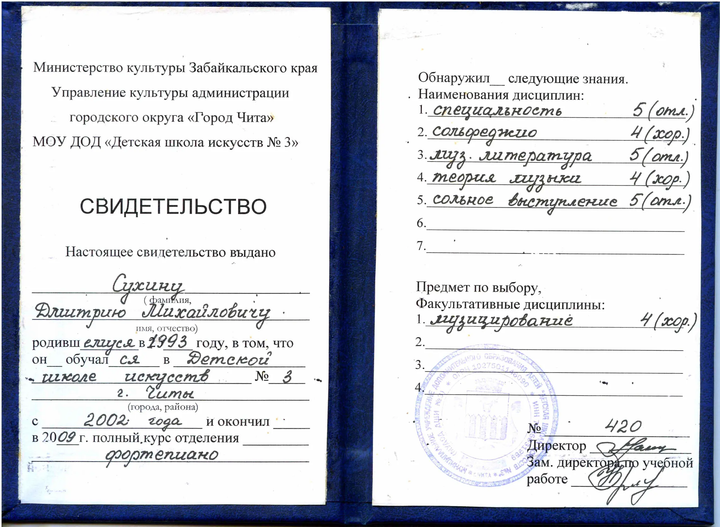 Министерство культуры Забайкальского края
Управление культуры администрации
городского округа «Город Чита»
МОУ ДОД «Детская школа искусств № 3»
СВИДЕТЕЛЬСТВО
Настоящее свидетельство выдано
Сухину
( фамилия,
Дмитрию Михайловичу
имя, отчество)
родивш емуся в 1993 году, в том, что
он обучал ся в Детской
школе искусств № 3
г. Читы
(города, района)
с 2002 года и окончил
в 2009 г. полный курс отделения
фортепиано
Обнаружил следующие знания.
Наименования дисциплин:
1. специальность 5 (отл.)
2. сольфеджио 4 (хор.)
3. муз. литература 5 (отл.)
4. теория музыки 4 (хор.)
5. сольное выступление 5 (отл.)
6.
7.
Предмет по выбору,
Факультативные дисциплины:
1. музицирование 4 (хор.)
2.
3.
4.
№ 420
Директор
Зам. директора по учебной
работе